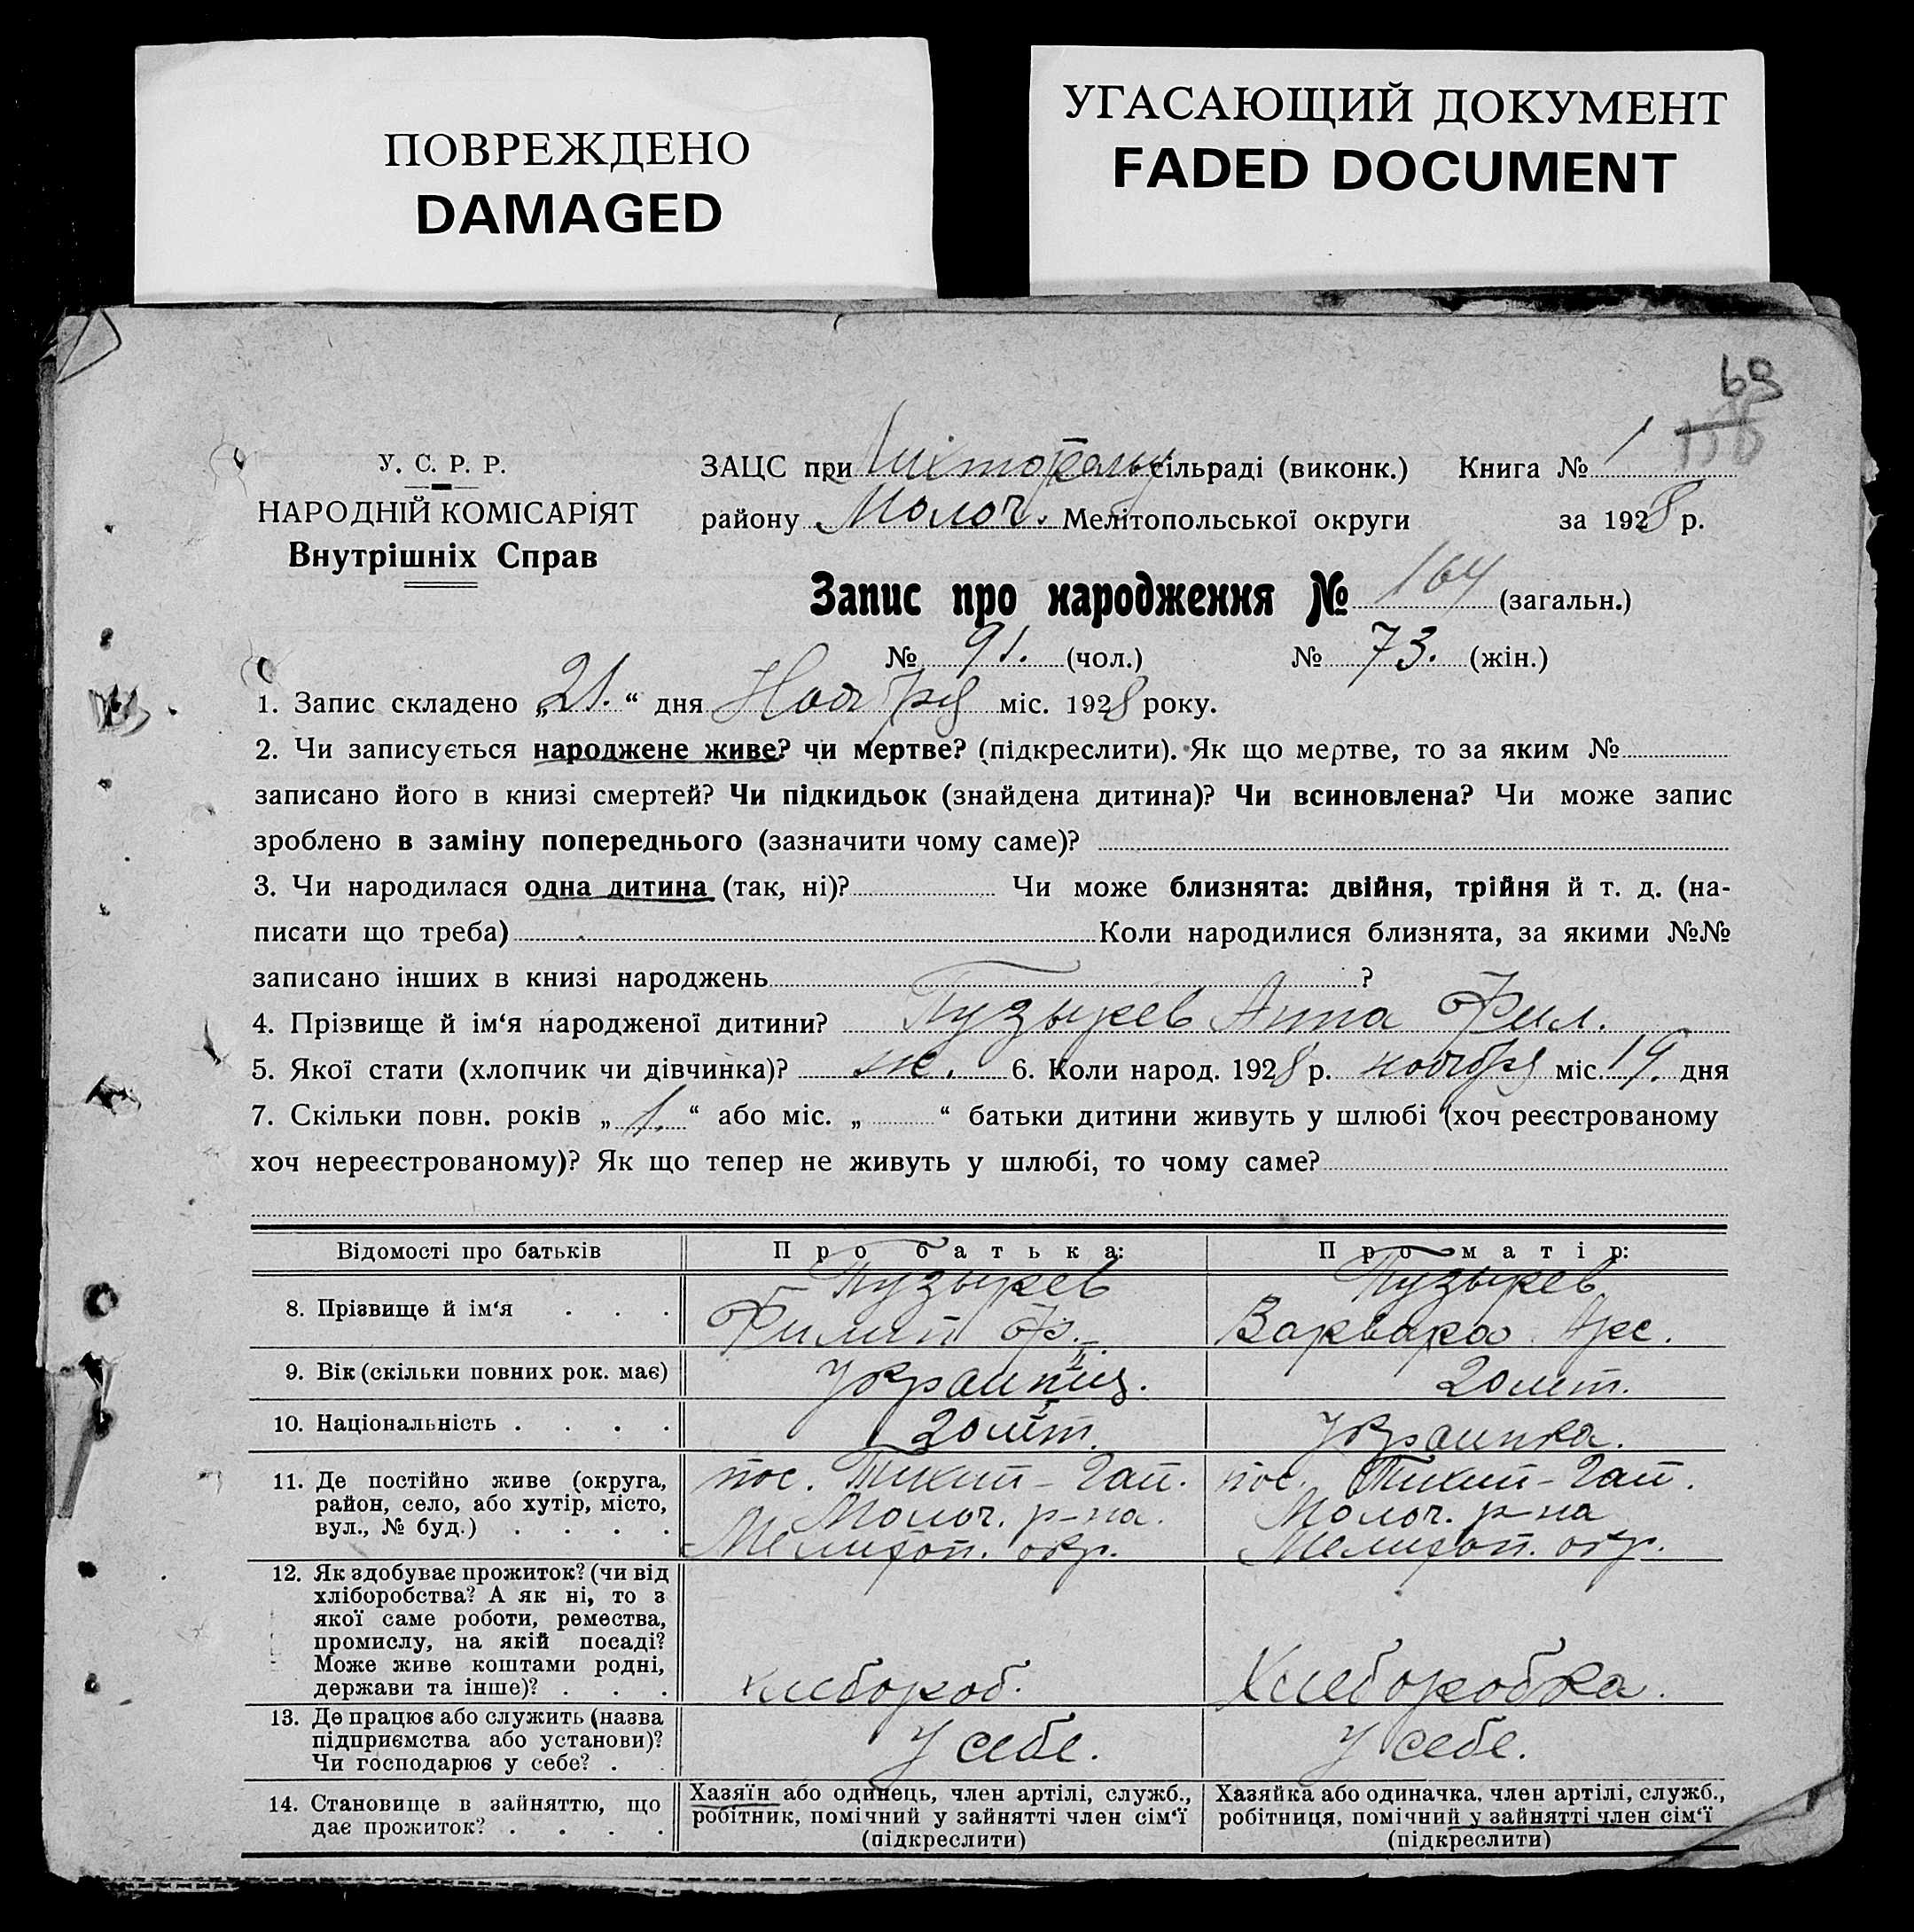 ПОВРЕЖДЕНО
DAMAGED
УГАСАЮЩИЙ ДОКУМЕНТ
FADED DOCUMENT
69
У. С. Р. Р.
НАРОДНІЙ КОМІСАРІЯТ
Внутрішніх Справ
ЗАЦС при сільраді (виконк.) Книга № 1
району Молоч. Мелітопольської округи за 1928 р.
Запис про народження № 164 (загальн.)
№ 91. (чол.) № 73. (жін.)
1. Запис складено „21.“ дня Ноября міс. 1928 року.
2. Чи записується народжене живе? чи мертве? (підкреслити). Як що мертве, то за яким №
записано його в книзі смертей? Чи підкидьок (знайдена дитина)? Чи всиновлена? Чи може запис
зроблено в заміну попереднього (зазначити чому саме)?
3. Чи народилася одна дитина (так, ні)? Чи може близнята: двійня, трійня й т. д. (на-
писати що треба) Коли народилися близнята, за якими №№
записано інших в книзі народжень ?
4. Прізвище й ім‘я народженої дитини? Пузырев Анна Фил.
5. Якої стати (хлопчик чи дівчинка)? ж. 6. Коли народ. 1928 р. ноября міс. 19. дня
7. Скільки повн. років „1.“ або міс. „ “ батьки дитини живуть у шлюбі (хоч реєстрованому
хоч нереєстрованому)? Як що тепер не живуть у шлюбі, то чому саме?
Відомості про батьків Про батька: Про матір:
8. Прізвище й ім‘я . . . Пузырев Филип Пузырев Варвара Арс.
9. Вік (скільки повних рок. має) Украинец. 20 лет.
10. Національність . . . . 20 лет. Украинка.
11. Де постійно живе (округа,
район, село, або хутір, місто,
вул., № буд.) . . . .
пос. Тихий-Гай.
Молоч. р-на.
Мелитоп. окр.
пос. Тихий-Гай.
Молоч. р-на
Мелитоп. окр.
12. Як здобуває прожиток? (чи від
хліборобства? А як ні, то з
якої саме роботи, ремества,
промислу, на якій посаді?
Може живе коштами родні,
держави та інше)? . . .
хлебороб. Хлеборобка.
13. Де працює або служить (назва
підприємства або установи)?
Чи господарює у себе? .
У себе. У себе.
14. Становище в зайняттю, що
дає прожиток? . . . .
Хазяїн або одинець, член артілі, служб.,
робітник, помічний у зайнятті член сім‘ї
(підкреслити)
Хазяйка або одиначка, член артілі, служб.,
робітниця, помічний у зайнятті член сім‘ї
(підкреслити)